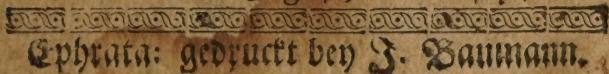 Ephrata: gedruckt bey J. Baumann.